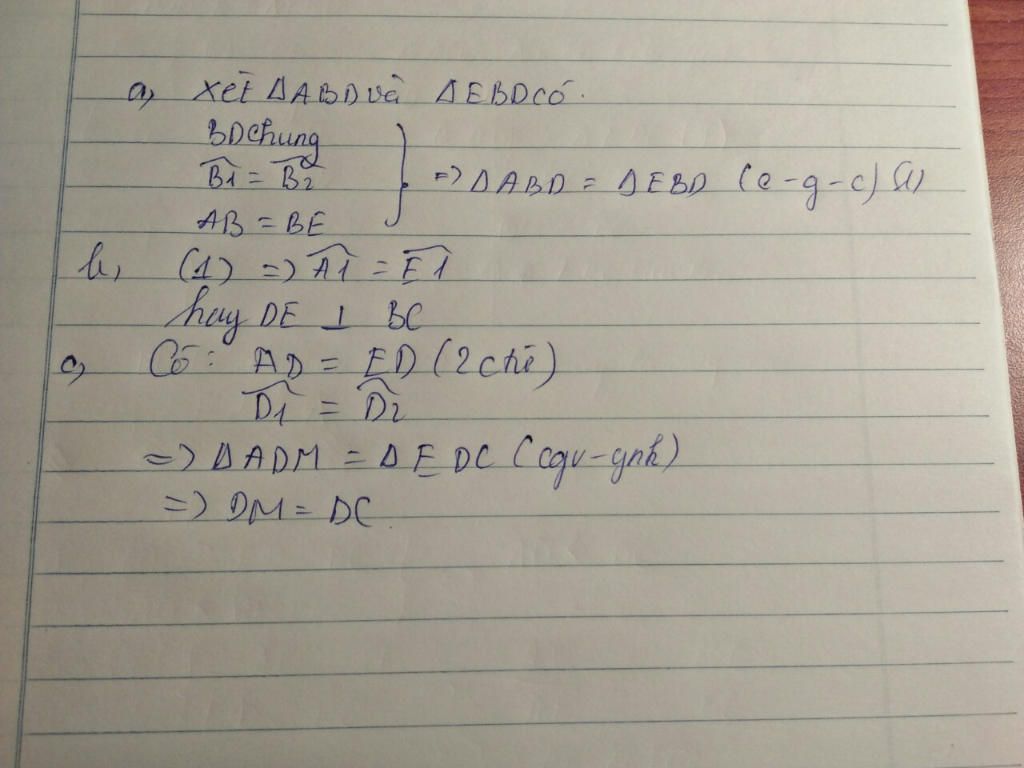 a, Xét ΔABD và ΔEBD có.
BD chung
B1 = B2
AB = BE
} => ΔABD = ΔEBD (c-g-c) (1)
b, (1) => A1 = E1
hay DE ⊥ BC
c, Có: AD = ED (2 ctứ)
D1 = D2
=> ΔADM = ΔEDC (cgv-gnk)
=> DM = DC